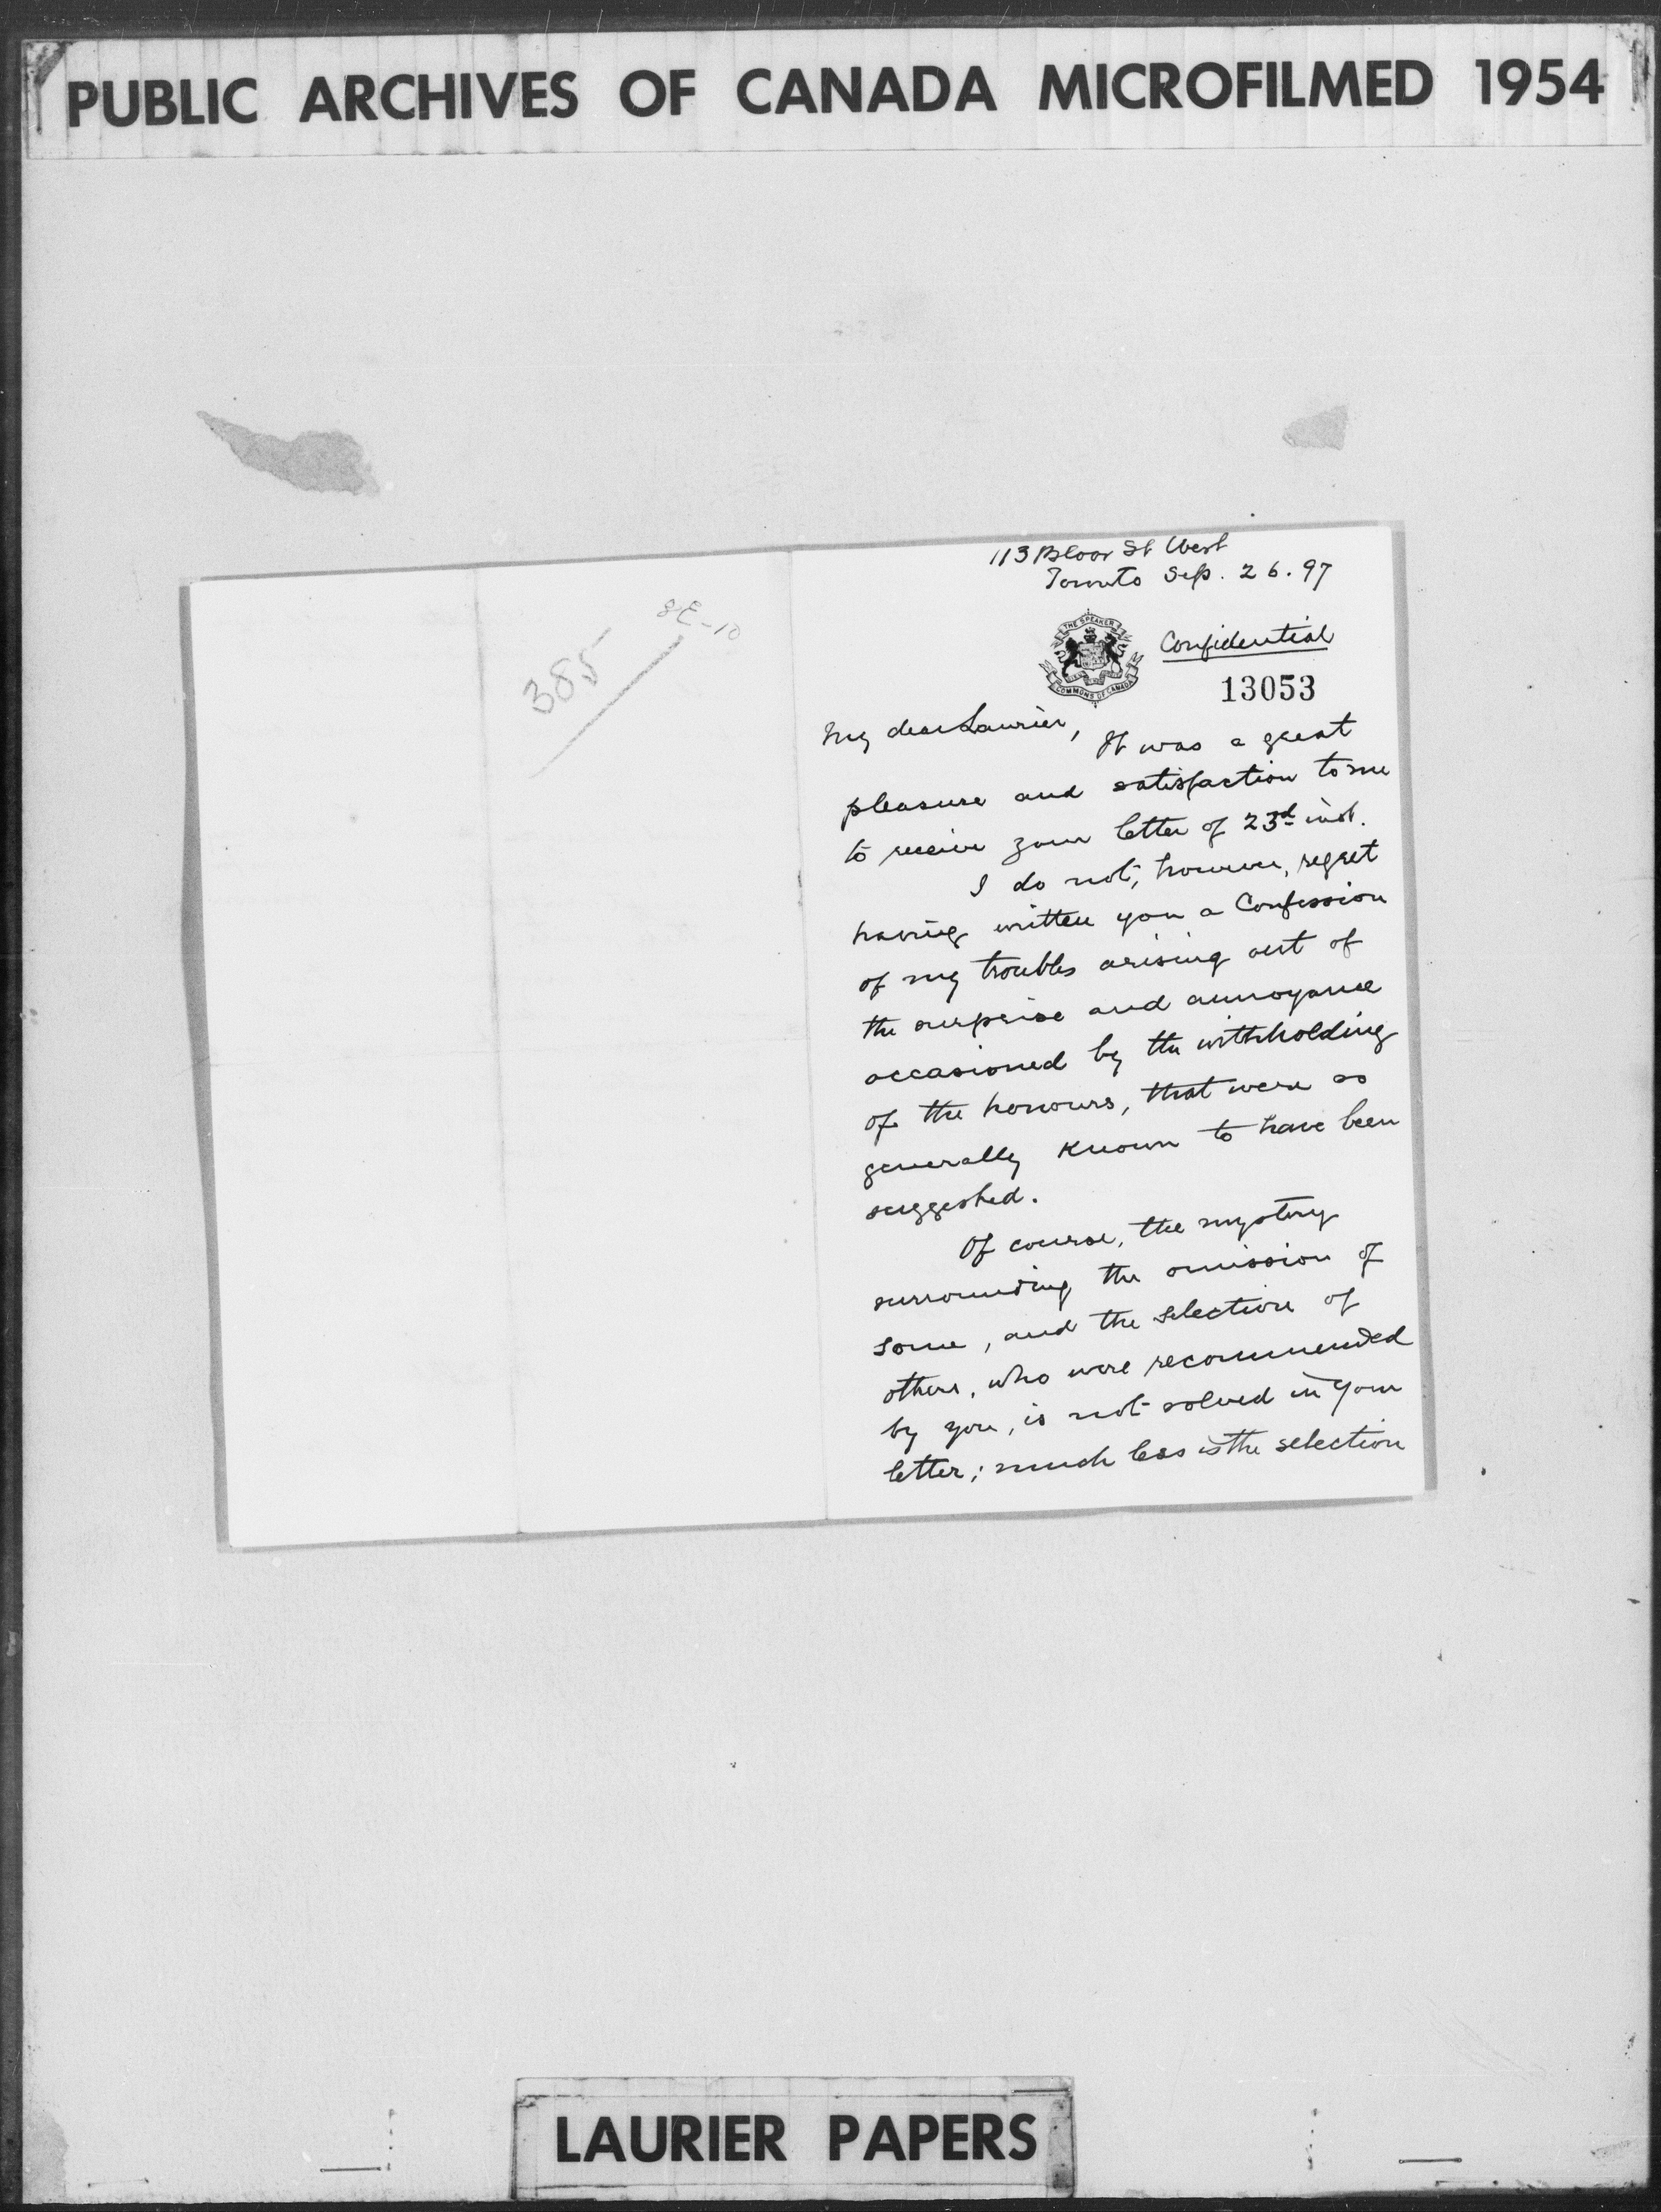 PUBLIC ARCHIVES OF CANADA MICROFILMED 1954
385
113 Bloor St West
Toronto Sep. 26. 97
THE SPEAKER
COMMONS OF CANADA
Confidential
13053
My dear Laurier,
It was a great
pleasure and satisfaction to me
to receive your letter of 23d inst.
I do not, however, regret
having written you a Confession
of my troubles arising out of
the surprise and annoyance
occasioned by the withholding
of the honours, that were so
generally known to have been
suggested.
Of course, the mystery
surrounding the omission of
some, and the selection of
others, who were recommended
by you, is not solved in your
letter; much less is the selection
LAURIER PAPERS